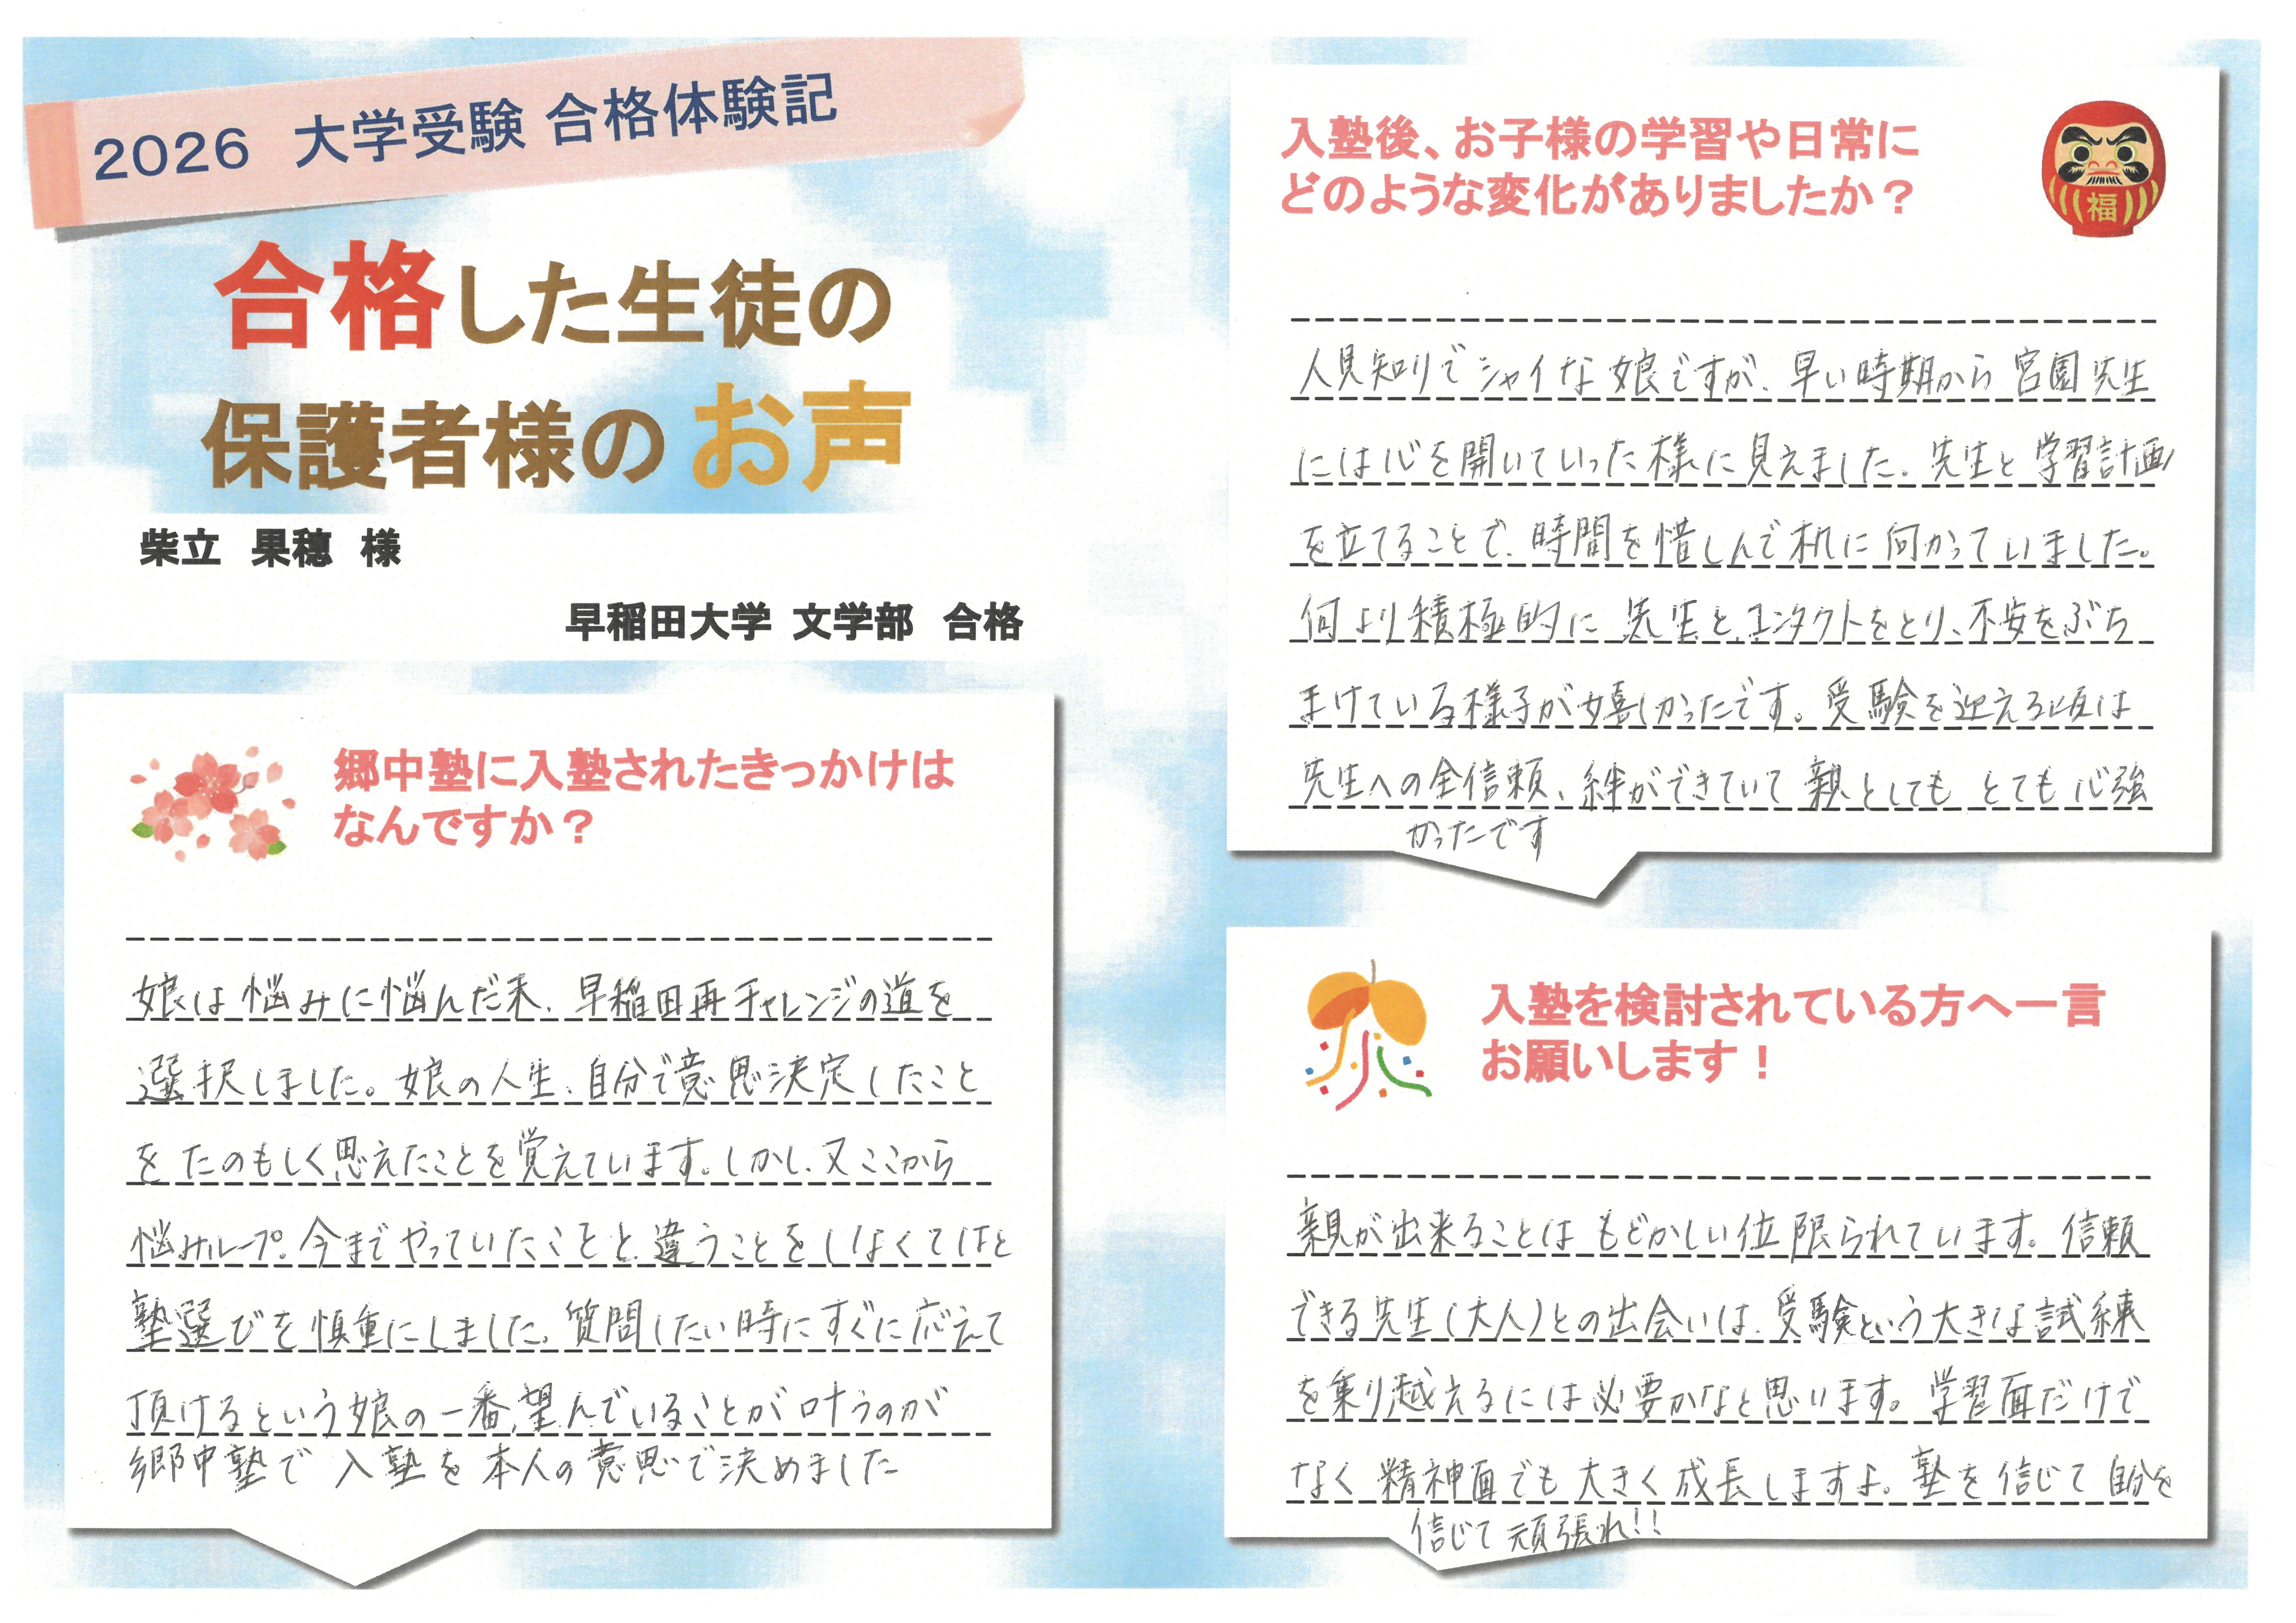 2026 大学受験 合格体験記
合格した生徒の
保護者様のお声
柴立 果穂 様
早稲田大学 文学部 合格
郷中塾に入塾されたきっかけは
なんですか？
娘は悩みに悩んだ末、早稲田再チャレンジの道を
選択しました。娘の人生、自分で意思決定したこと
をたのもしく思えたことを覚えています。しかし、又ここから
悩みループ。今までやっていたことと違うことをしなくてはと
塾選びを慎重にしました。質問したい時にすぐに応えて
頂けるという娘の一番望んでいることが叶うのが
郷中塾で入塾を本人の意思で決めました
入塾後、お子様の学習や日常に
どのような変化がありましたか？
福
人見知りでシャイな娘ですが、早い時期から宮園先生
には心を開いていった様に見えました。先生と学習計画
を立てることで、時間を惜しんで机に向かっていました。
何より積極的に先生とコンタクトをとり、不安をぶち
まけている様子が嬉しかったです。受験を迎える頃は
先生への全信頼、絆ができていて親としてもとても心強
かったです
入塾を検討されている方へ一言
お願いします！
親が出来ることはもどかしい位限られています。信頼
できる先生(大人)との出会いは、受験という大きな試練
を乗り越えるには必要かなと思います。学習面だけで
なく精神面でも大きく成長しますよ。塾を信じて自分を
信じて頑張れ!!